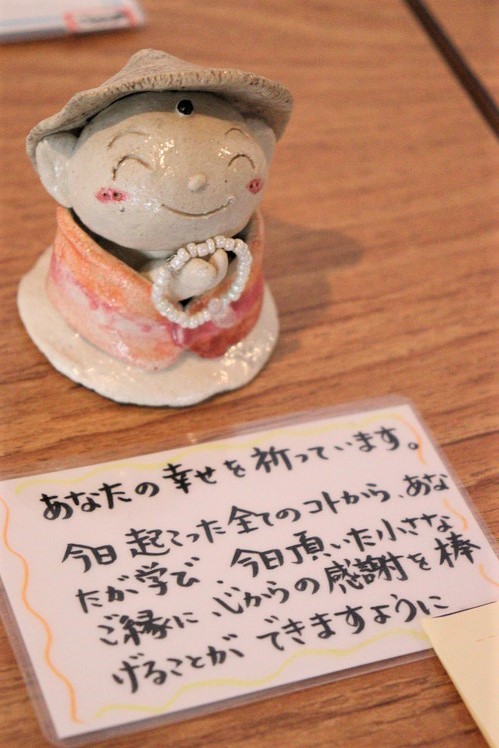 あなたの幸せを祈っています。
今日起こった全てのコトから、あな
たが学び、今日頂いた小さな
ご縁に心からの感謝を捧
げることができますように